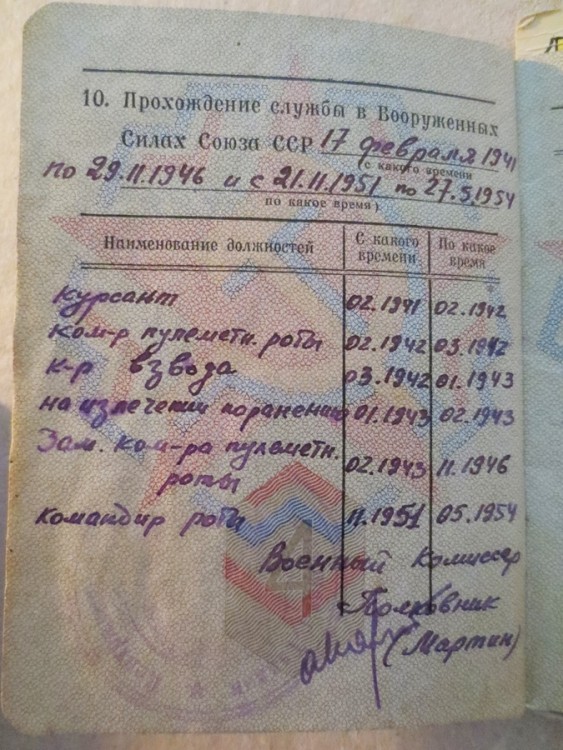 10. Прохождение службы в Вооруженных
Силах Союза ССР 17 февраля 1941
(с какого времени
по 29.11.1946 и с 21.11.1951 по 27.5.1954
по какое время)
Наименование должностей С какого времени По какое время
курсант 02.1941 02.1942
ком-р пулеметн. роты 02.1942 03.1942
к-р взвода 03.1942 01.1943
на излечении поранению 01.1943 02.1943
Зам. ком-ра пулеметн.
роты 02.1943 11.1946
командир роты 11.1951 05.1954
4
Военный Комиссар
Полковник
(Мартин)